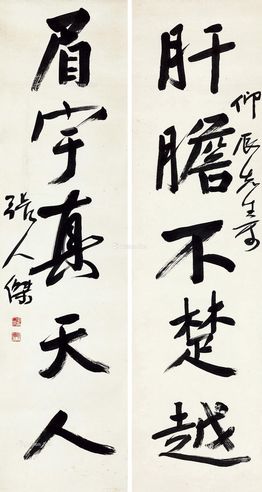 肝膽不楚越
仰辰先生
眉宇真天人
張人傑